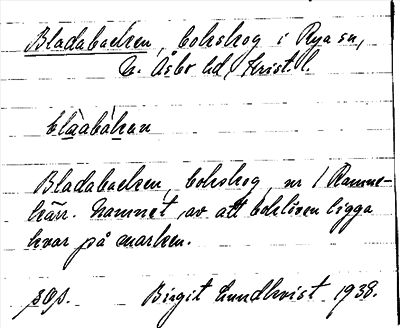 Bladabacken, bokskog i Rya sn,
N. Åsbo hd, Krist. l.
blàabákan
Bladabacken, bokskog, nr 1 Ramne-
kärr. Namnet av att boklöven ligga
kvar på marken.
Birgit Lundkvist 1938.